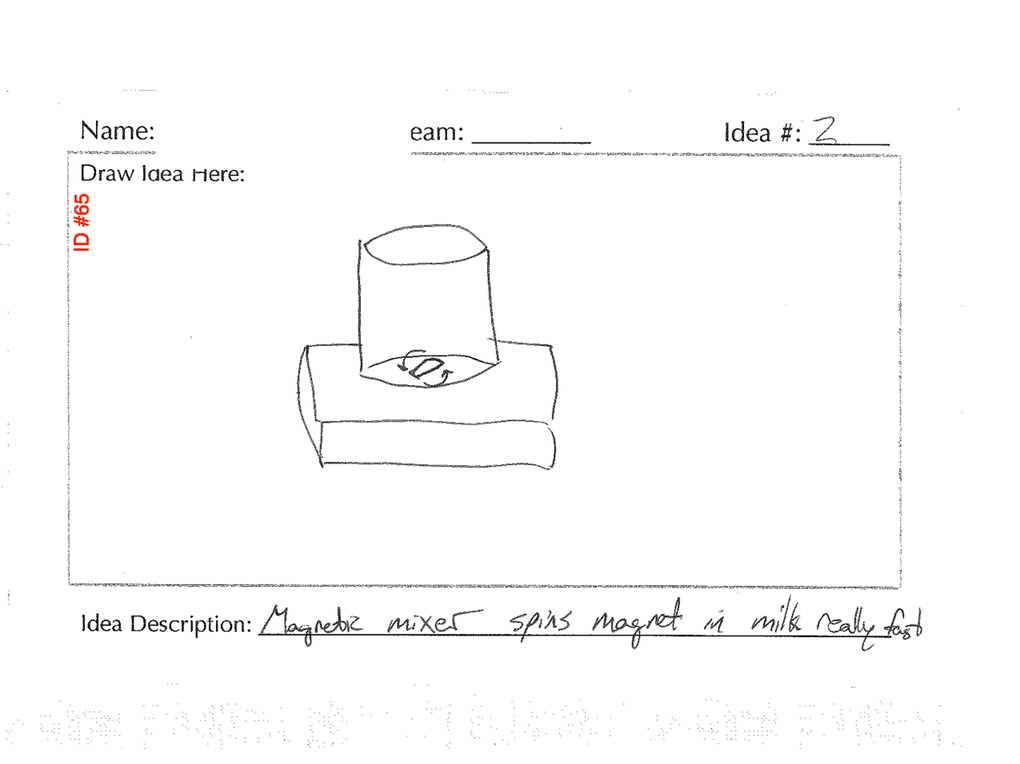 Name: eam: Idea #: 2
Draw Idea Here:
ID #65
Idea Description: Magnetic mixer spins magnet in milk really fast